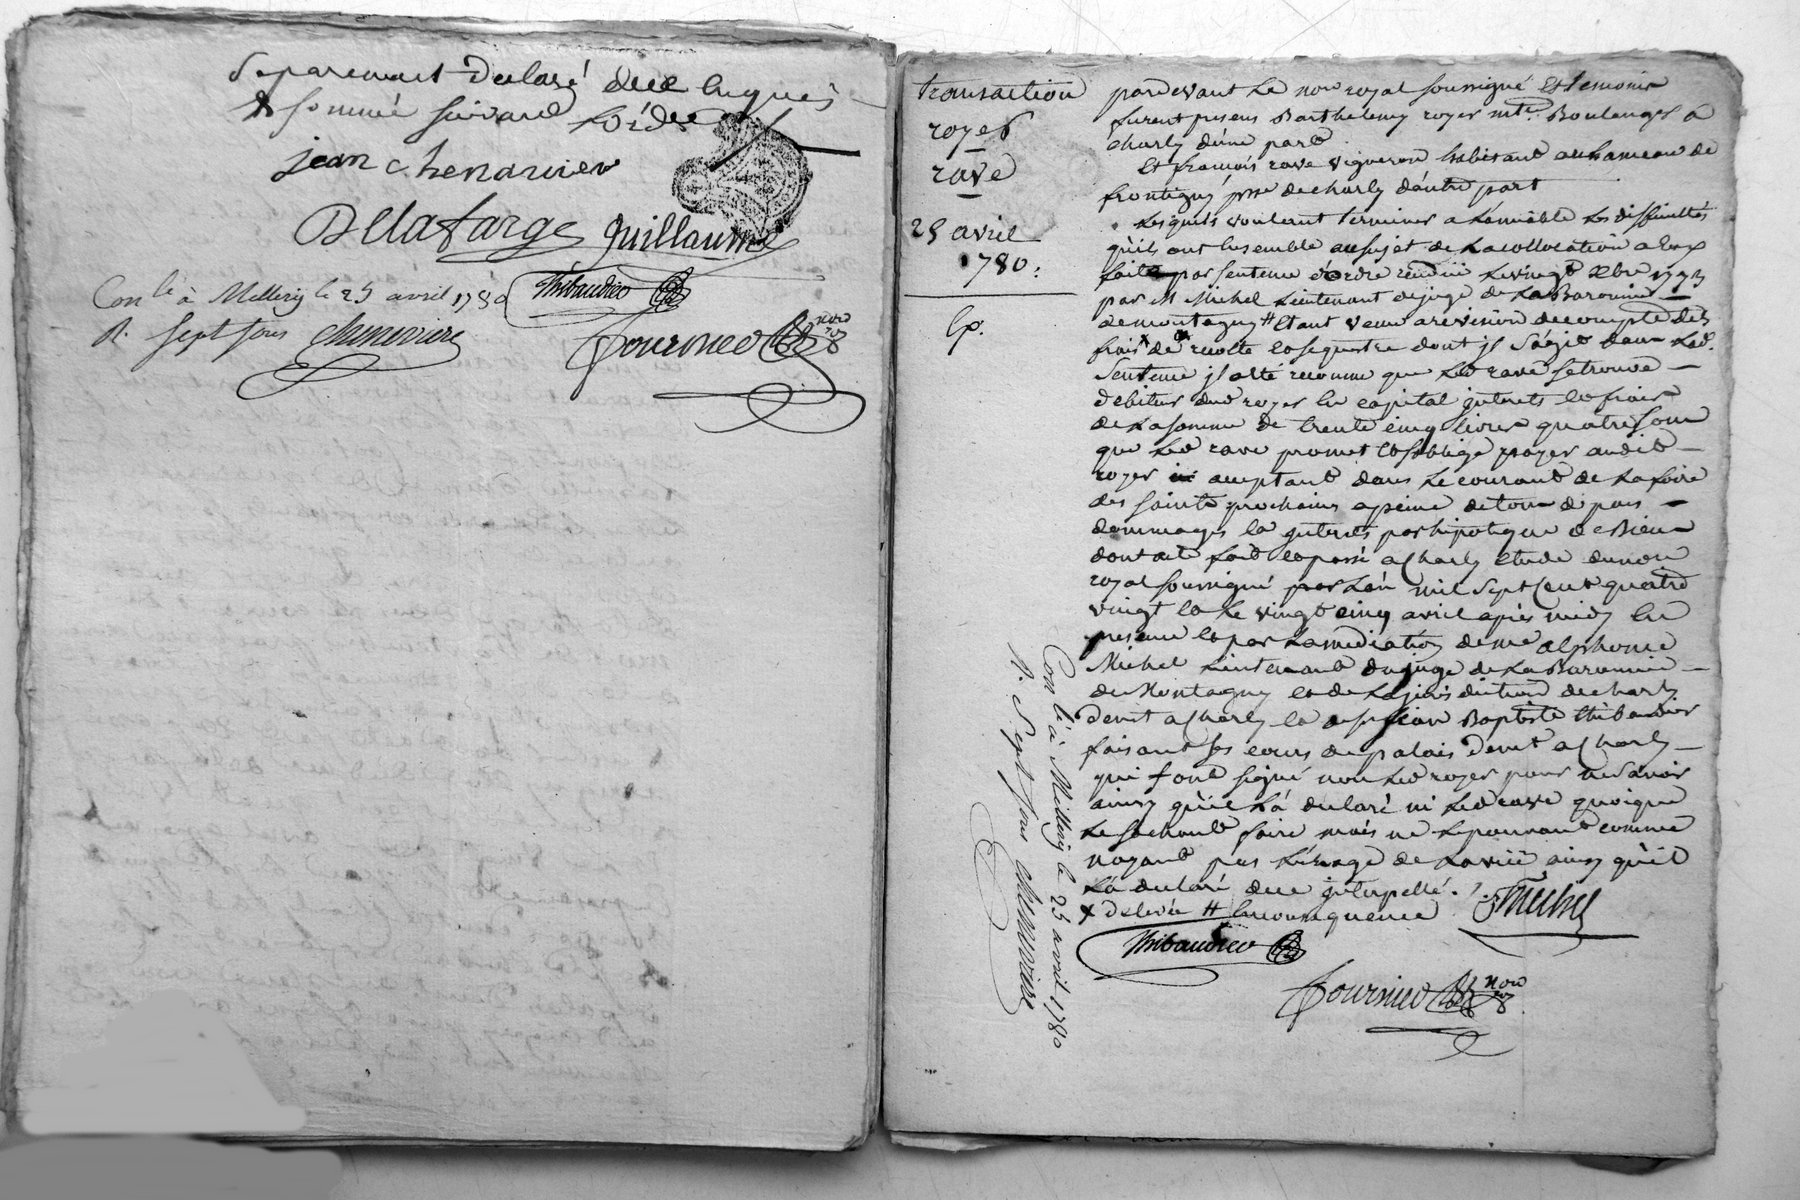 separement declaré de ce enquis
& sommé suivant l'ordce
jean chenavier
Dellafarge guillaume
Thibaudier
Con lé à Millery le 25 avril 1780
R. sept sous chenoviere
fournier nore ral
transaction
royer
rave
25 avril
1780.
Ex.
pardevant Le nore royal soussigné Et temoins
furent presens Barthelemy royer mtre Boulanger a
charly d'une part
Et francois rave vigneron habitant au hameau de
frontigny psse de charly d'autre part
Lesquels voulant terminer a L'amiable Les difficultés
qu'ils ont Ensemble au sujet de La collocation a Eux
faite par sentence d'ordre rendue Le vingt xbre 1773
par M Michel Lieutenant de juge de La Baronnie
de montagny # Etant venu a revision de compte des
frais de recolte et sequestre dont jl s'agit dans Led.
sentence jl a eté reconnu que Led rave se trouve
debiteur dud royer En capital jnterets et frais
de La somme de trente cinq livres quatre sous
que Led rave promet et s'oblige payer audit
royer acceptant dans Le courant de La foire
des saints prochains a peine de tous depens
dommages et jnterets par hipoteque de Biens
dont acte fait et passé a Charly etude du nore
royal soussigné par L'an mil sept Cent quatre
vingt et Le vingt cinq avril après midy En
presence et par La mediation de me alphonce
Michel Lieutenant de juge de La Baronnie
de Montagny et de La jurisdiction de charly
demt a Charly et de sr jean Baptiste thibaudier
faisant ses cours de palais demt a Charly
qui font signé non Led royer pour ne savoir
ainsy qu'il L'a declaré ni Led rave quoique
Le sachant faire mais ne Le pouvant comme
n'ayant pas L'usage de La vüe ainsy qu'il
L'a declaré de ce jnterpellé.
x delivée # En consequence
Michel
Thibaudier
fournier nore ral
Con lé à Millery le 25 avril 1780
R. sept sous chenoviere